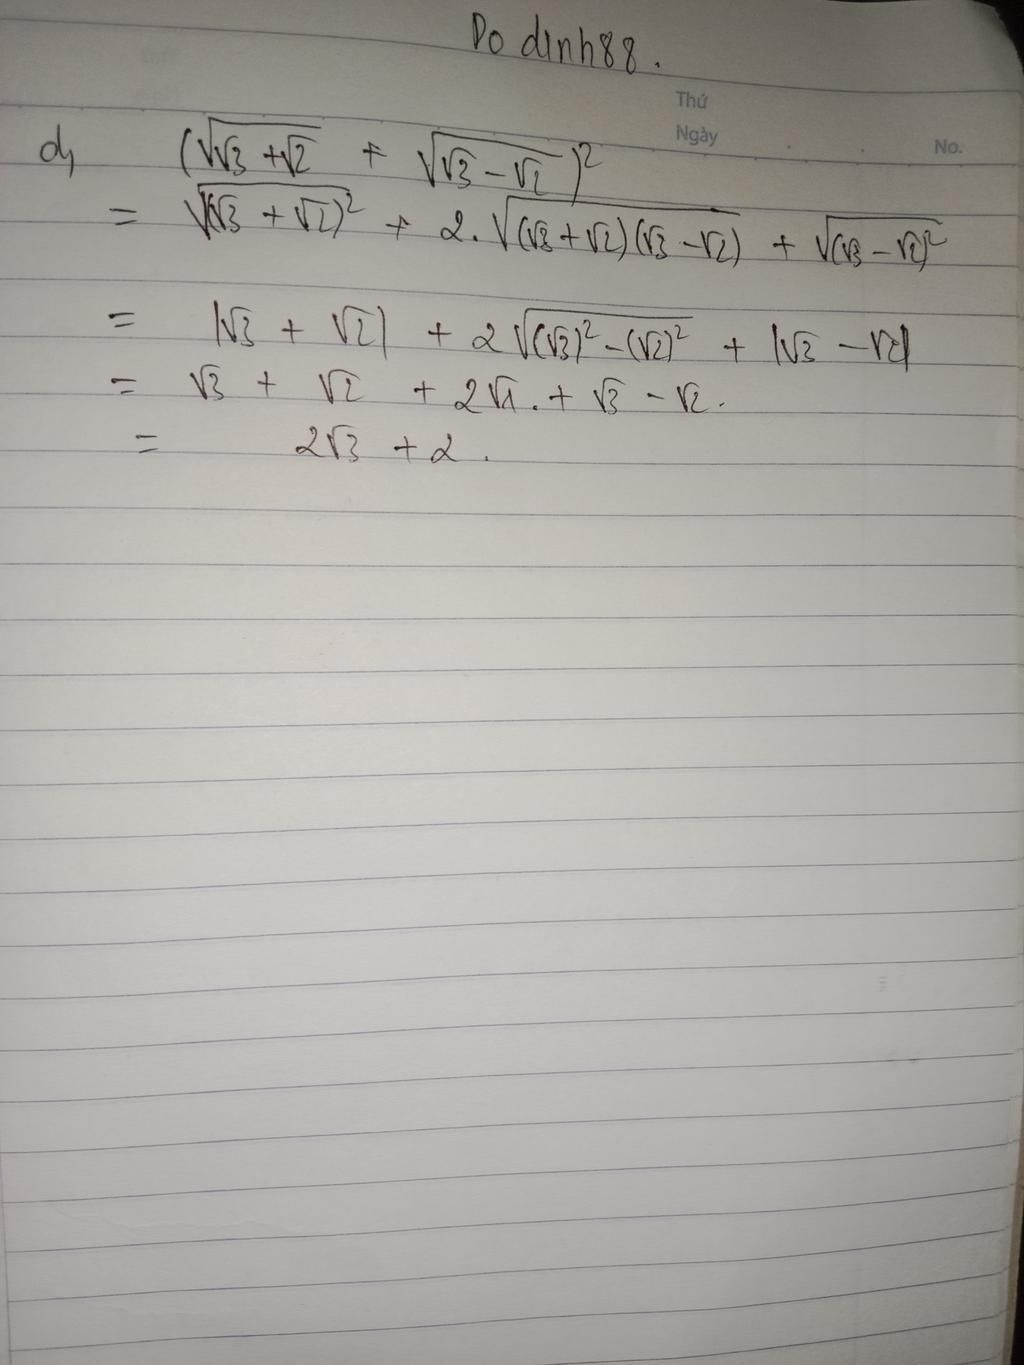 Do dinh88.
Thứ
Ngày
No.
d, (√(√3 + √2) + √(√3 − √2))²
= √(√3 + √2)² + 2.√(√3 + √2)(√3 − √2) + √(√3 − √2)²
= |√3 + √2| + 2√(√3)² − (√2)² + |√3 − √2|
= √3 + √2 + 2√1. + √3 − √2.
= 2√3 + 2.